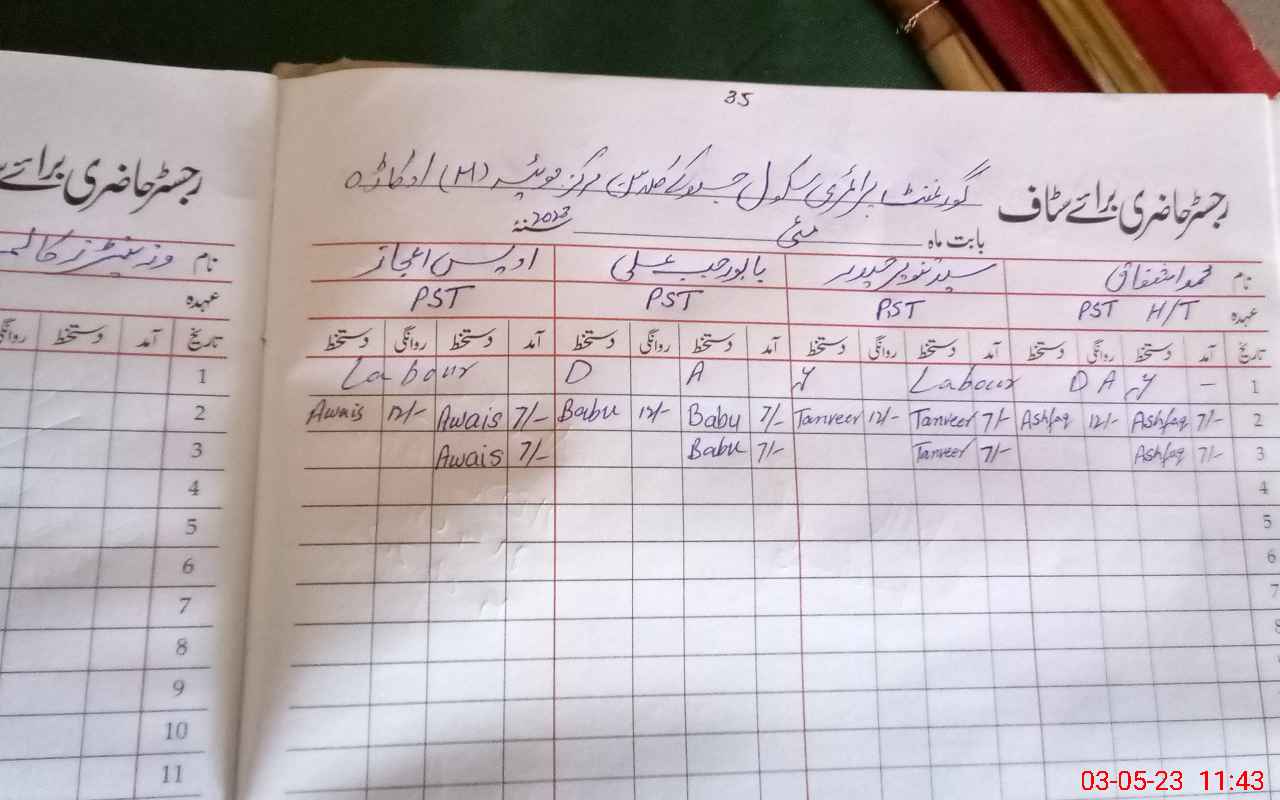 35
رجسٹر حاضری برائے سٹاف گورنمنٹ پرائمری سکول مرکز (M) اوکاڑہ
بابت ماہ مئی 2023
نام محمد اشفاق سید تنویر حیدر بابو رجب علی اویس اعجاز
عہدہ PST H/T PST PST PST
تاریخ آمد دستخط روانگی دستخط آمد دستخط روانگی دستخط آمد دستخط روانگی دستخط آمد دستخط روانگی دستخط
Labour D A Y Labour D A Y - 1
Awais 12/- Awais 7/- Babu 12/- Babu 7/- Tanveer 12/- Tanveer 7/- Ashfaq 12/- Ashfaq 7/- 2
Awais 7/- Babu 7/- Tanveer 7/- Ashfaq 7/- 3
4
5
6
7
8
رجسٹر حاضری برائے
نام
عہدہ
تاریخ آمد دستخط روانگی
1
2
3
4
5
6
7
8
9
10
11
03-05-23 11:43